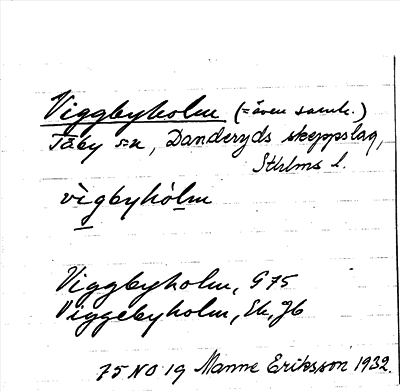 Viggbyholm (= även samh.)
Täby sn, Danderyds skeppslag,
Sthlms l.
vìgbyhòlm
Viggbyholm, G75
Viggebyholm, Ek, Jb
75 NO 19 Manne Eriksson 1932.